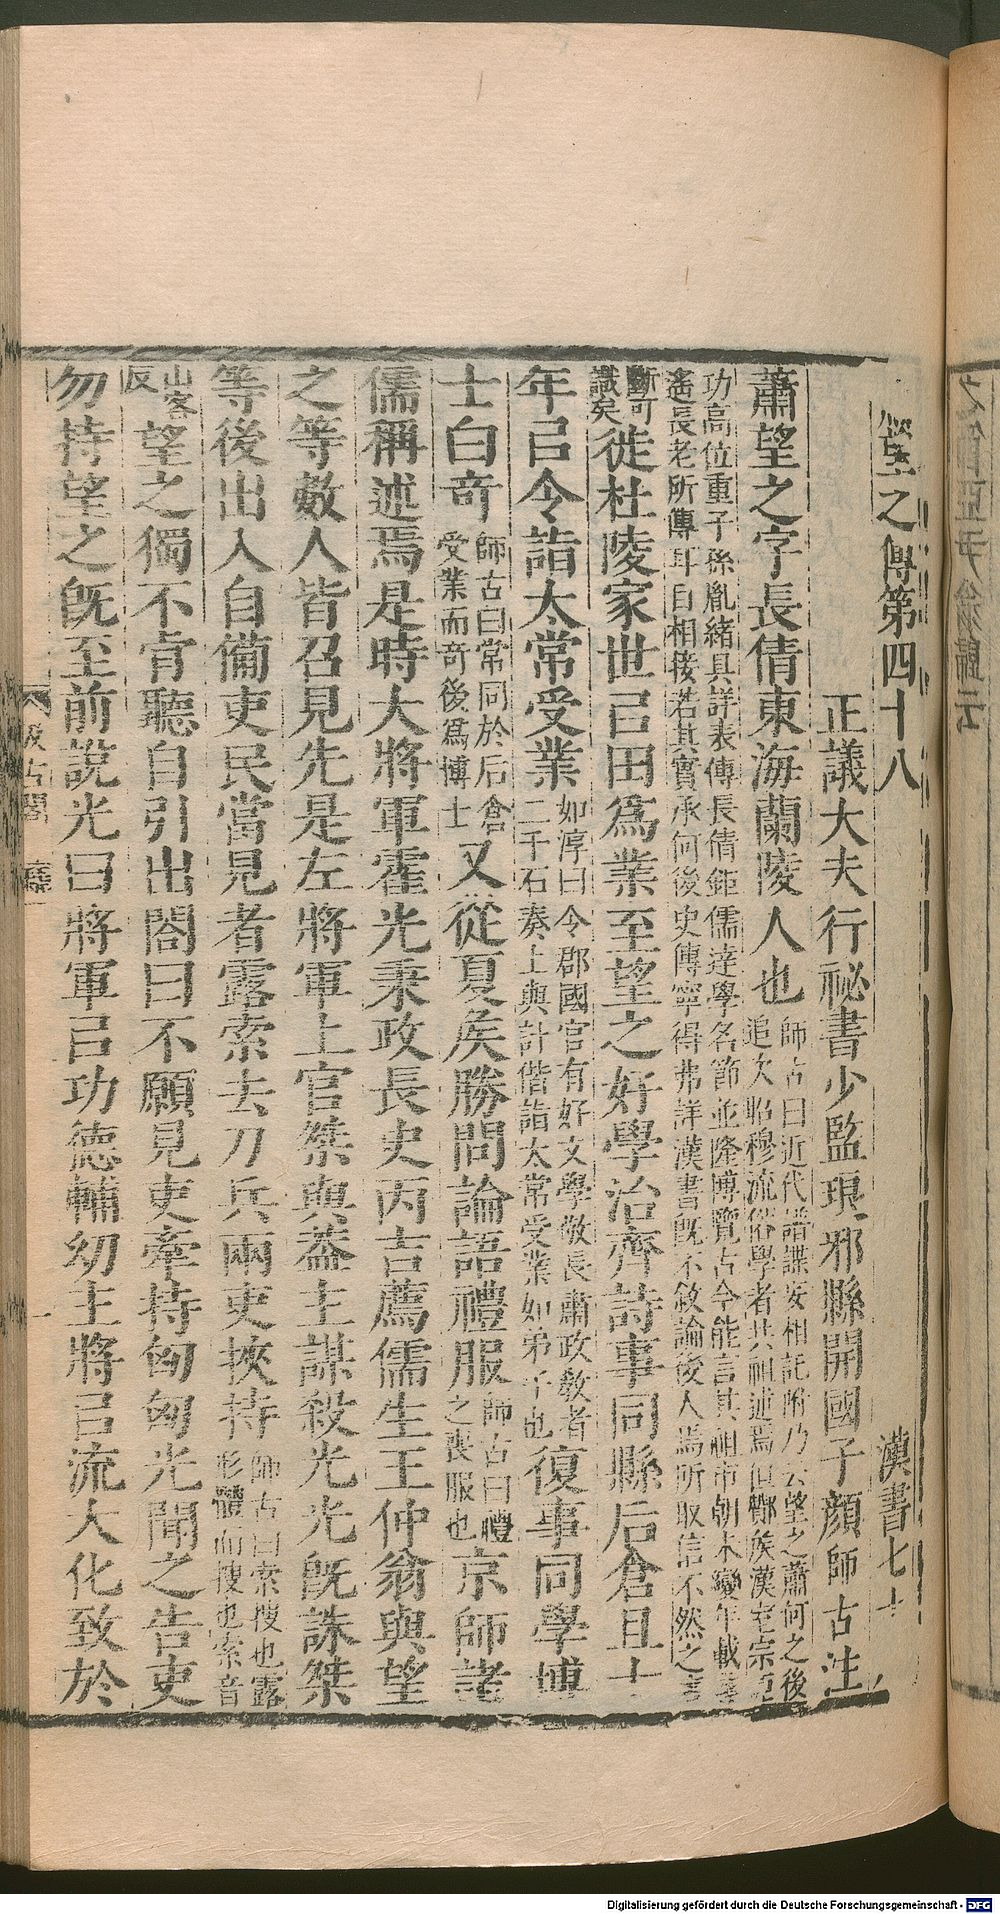 望之傳第四十八 漢書七十八
正議大夫行祕書少監琅邪縣開國子顏師古注
蕭望之字長倩東海蘭陵人也師古曰近代譜諜妄相託附乃云望之蕭何之後追次昭穆流俗學者共祖述焉但酇矦漢室宗臣
功高位重子孫胤緒具詳表傳長倩鉅儒達學名節並隆博覽古今能言其祖市朝未變年載非遙長老所傳耳目相接若其實承何後史傳寧得弗詳漢書旣不敘論後人焉所取信不然之事
斷可識矣徙杜陵家世㠯田爲業至望之好學治齊詩事同縣后倉且十
年㠯令詣太常受業如淳曰令郡國官有好文學敬長肅政敎者二千石奏上與計偕詣太常受業如弟子也復事同學博
士白奇師古曰常同於后倉受業而奇後爲博士又從夏矦勝問論語禮服師古曰禮之喪服也京師諸
儒稱述焉是時大將軍霍光秉政長史丙吉薦儒生王仲翁與望
之等數人皆召見先是左將軍上官桀與蓋主謀殺光光旣誅桀
等後出入自備吏民當見者露索去刀兵兩吏挾持師古曰索搜也露形體而搜也索音
山客反望之獨不肯聽自引出閤曰不願見吏牽持匈匈光聞之告吏
勿持望之旣至前說光曰將軍㠯功德輔幼主將㠯流大化致於
汲古閣
Digitalisierung gefördert durch die Deutsche Forschungsgemeinschaft - DFG